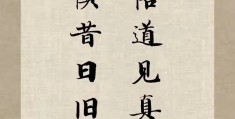 悟道见真
昔日旧